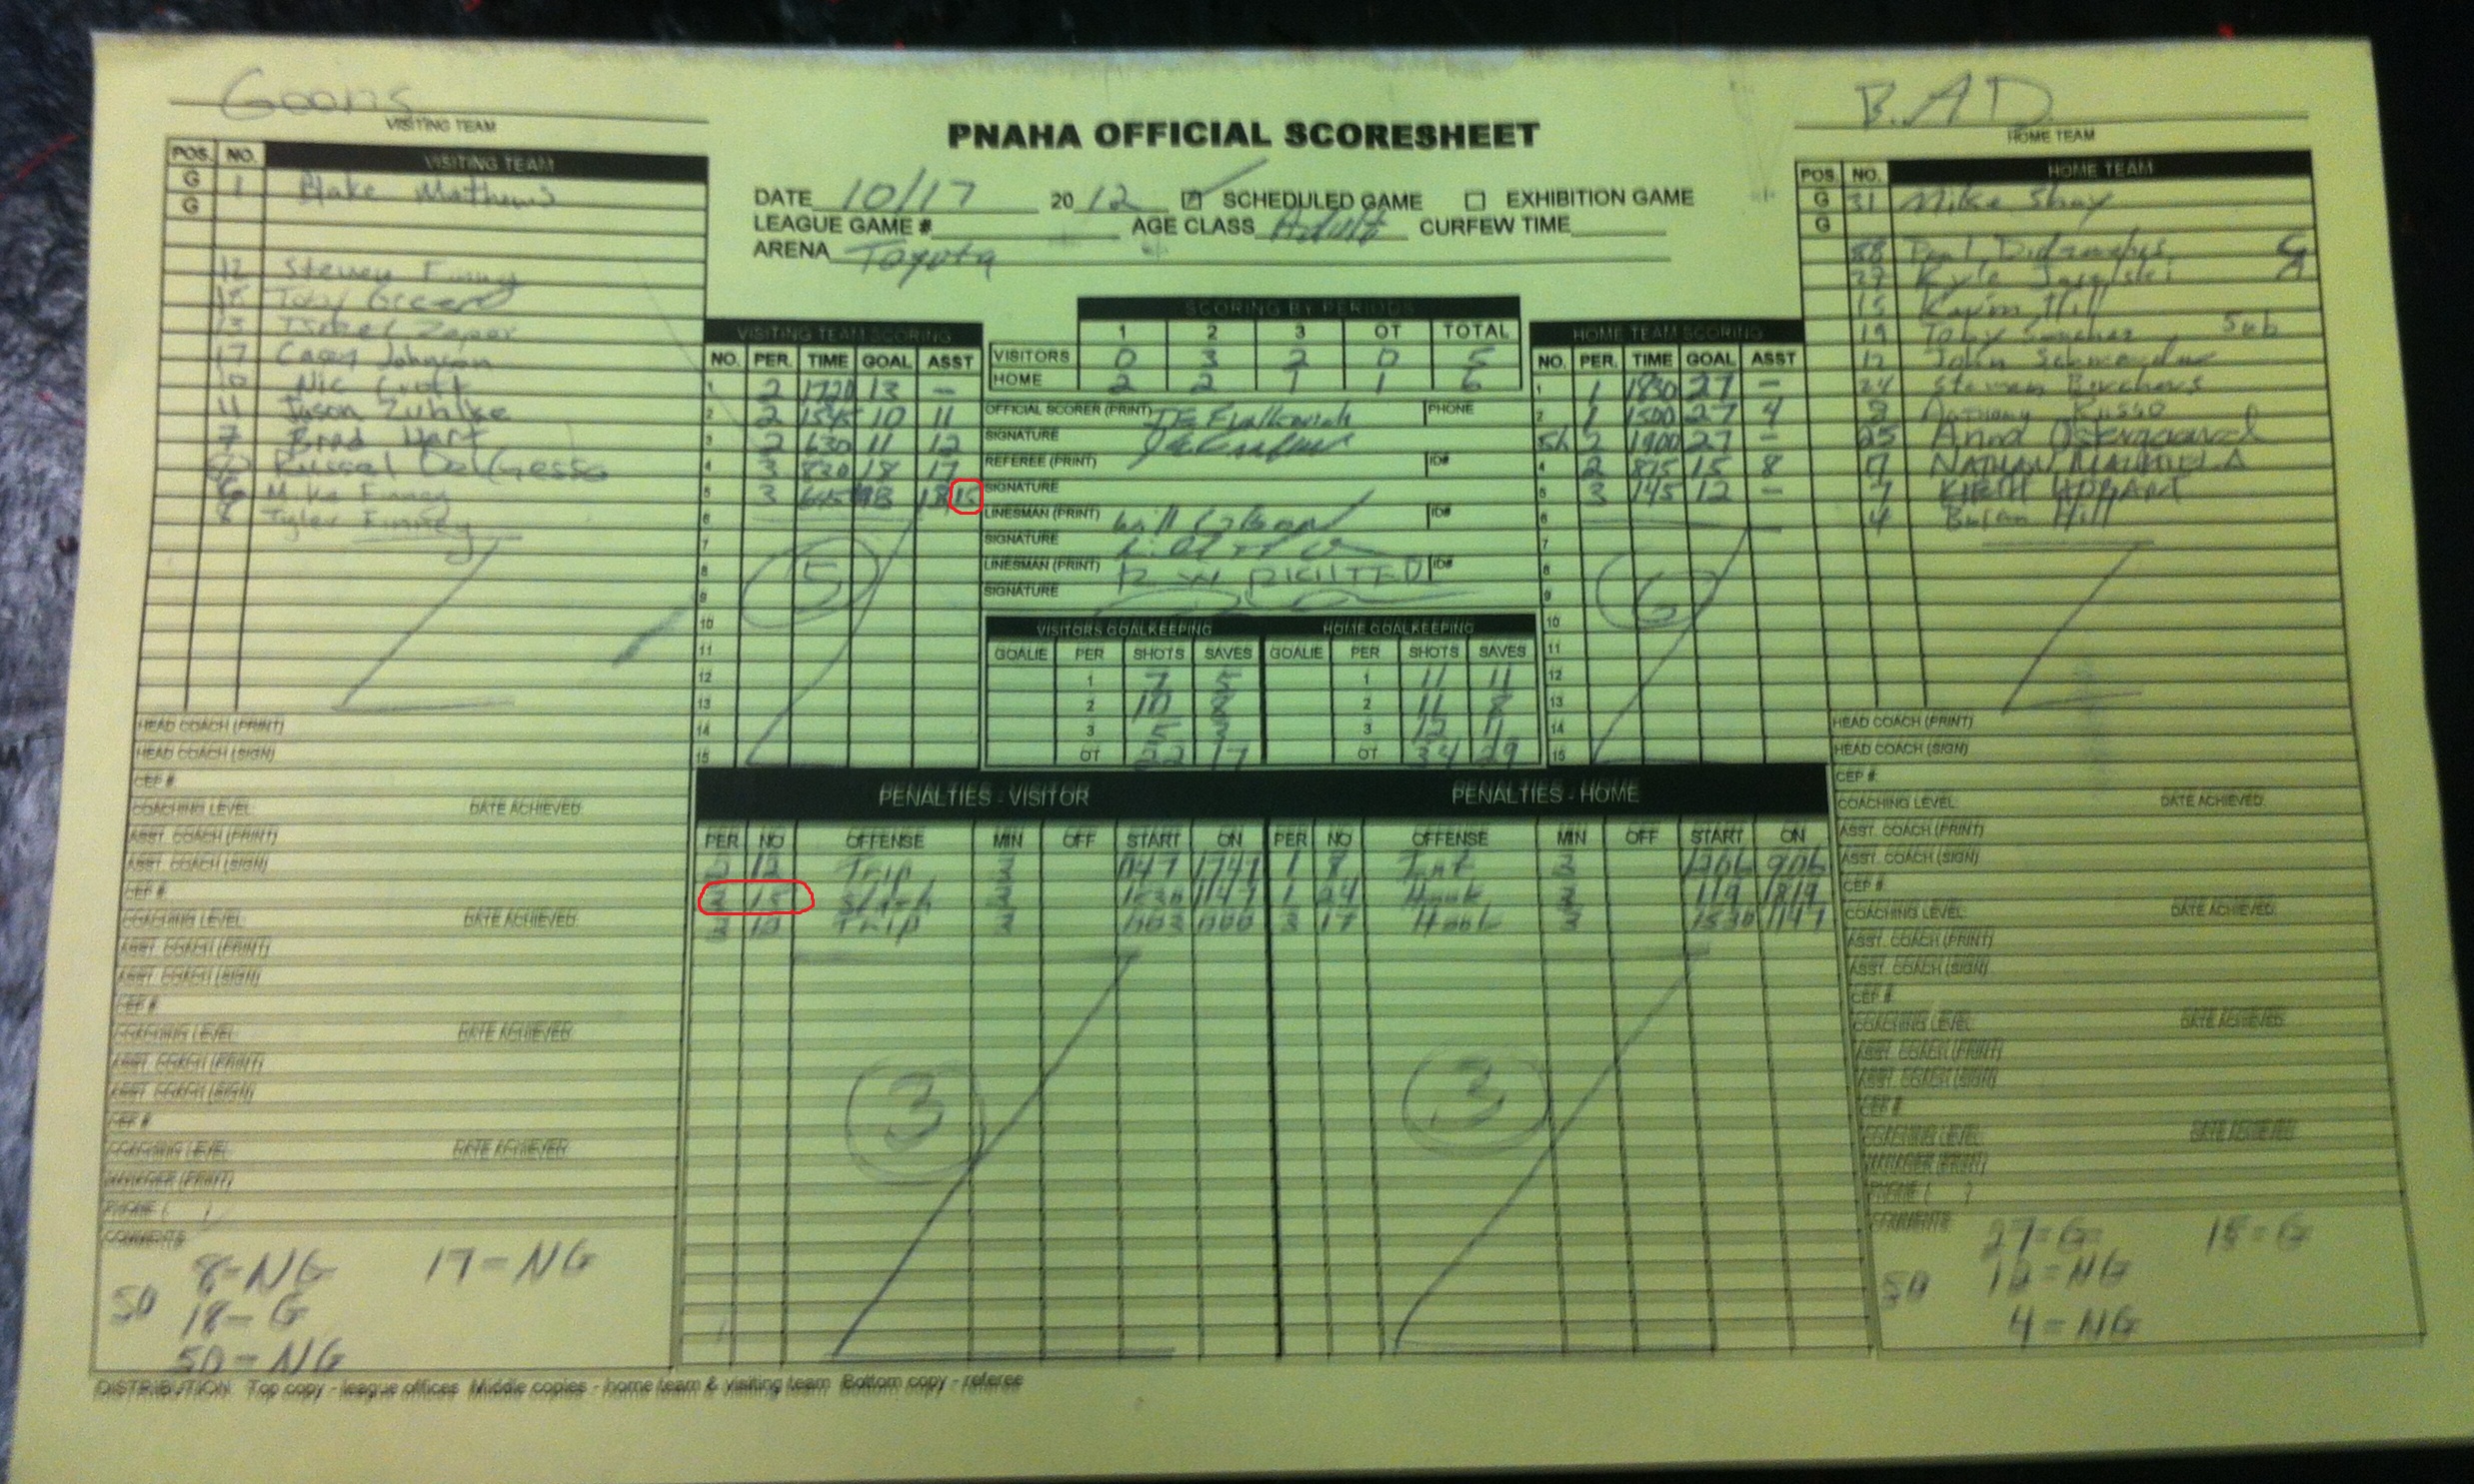 Goons
B.A.D.
VISITING TEAM
HOME TEAM
PNAHA OFFICIAL SCORESHEET
POS. NO. VISITING TEAM
G 1 Blake Mathews
G
12 Steven Finny
18 Toby
13 Zapor
17 Casey Johnson
10 Nic
11 Jason Zuhlke
7 Brad Hart
Russel DalGesso
Mike Finney
8 Tyler Finney
DATE 10/17 2012 SCHEDULED GAME EXHIBITION GAME
LEAGUE GAME # AGE CLASS Adult CURFEW TIME
ARENA Toyota
POS. NO. HOME TEAM
G 31 Mike Shay
G
88 Paul
27 Kyle
15 Kevin Hill
19 Toby Sub
12 John
24 Steven
Anthony Russo
25 Anna Ostergaard
7 NATHAN
7 KEITH
4 Hill
SCORING BY PERIODS
1 2 3 OT TOTAL
VISITORS 0 3 2 0 5
HOME 2 2 1 1 6
VISITING TEAM SCORING
NO. PER. TIME GOAL ASST
1 2 1720 13 –
2 2 1545 10 11
3 2 630 11 12
4 3 820 18 17
5 3 15
6
7
8
9
10
11
12
13
14
15
5
HOME TEAM SCORING
NO. PER. TIME GOAL ASST
1 1 1830 27 –
2 1 1500 27 4
Sh 2 1900 27 –
4 2 815 15 8
5 3 145 12 –
6
7
8
9
10
11
12
13
14
15
6
OFFICIAL SCORER (PRINT) PHONE
SIGNATURE
REFEREE (PRINT) ID#
SIGNATURE
LINESMAN (PRINT) Will ID#
SIGNATURE
LINESMAN (PRINT) ID#
SIGNATURE
VISITORS GOALKEEPING HOME GOALKEEPING
GOALIE PER SHOTS SAVES GOALIE PER SHOTS SAVES
1 7 5 1 11 11
2 10 8 2 11
3 5 3 3 12 11
OT 22 17 OT 34 29
PENALTIES - VISITOR PENALTIES - HOME
PER NO OFFENSE MIN OFF START ON PER NO OFFENSE MIN OFF START ON
2 12 Trip 2 1747 1 8 2 1206 906
15 Slash 2 1530 1147 1 24 Hook 2 119 1819
Trip 3 17 Hook 2 1530 1147
3
3
HEAD COACH (PRINT)
HEAD COACH (SIGN)
CEP #
COACHING LEVEL DATE ACHIEVED
ASST. COACH (PRINT)
ASST. COACH (SIGN)
CEP #
COACHING LEVEL DATE ACHIEVED
ASST. COACH (PRINT)
ASST. COACH (SIGN)
CEP #
COACHING LEVEL DATE ACHIEVED
ASST. COACH (PRINT)
ASST. COACH (SIGN)
CEP #
COACHING LEVEL DATE ACHIEVED
MANAGER (PRINT)
PHONE ( )
COMMENTS
8-NG 17-NG
SO 18-G
50-NG
HEAD COACH (PRINT)
HEAD COACH (SIGN)
CEP #
COACHING LEVEL DATE ACHIEVED
ASST. COACH (PRINT)
ASST. COACH (SIGN)
CEP #
COACHING LEVEL DATE ACHIEVED
ASST. COACH (PRINT)
ASST. COACH (SIGN)
CEP #
COACHING LEVEL DATE ACHIEVED
ASST. COACH (PRINT)
ASST. COACH (SIGN)
CEP #
COACHING LEVEL DATE ACHIEVED
MANAGER (PRINT)
PHONE ( )
COMMENTS
27-G 15-G
SO 12-NG
4-NG
DISTRIBUTION: Top copy - league offices Middle copies - home team & visiting team Bottom copy - referee